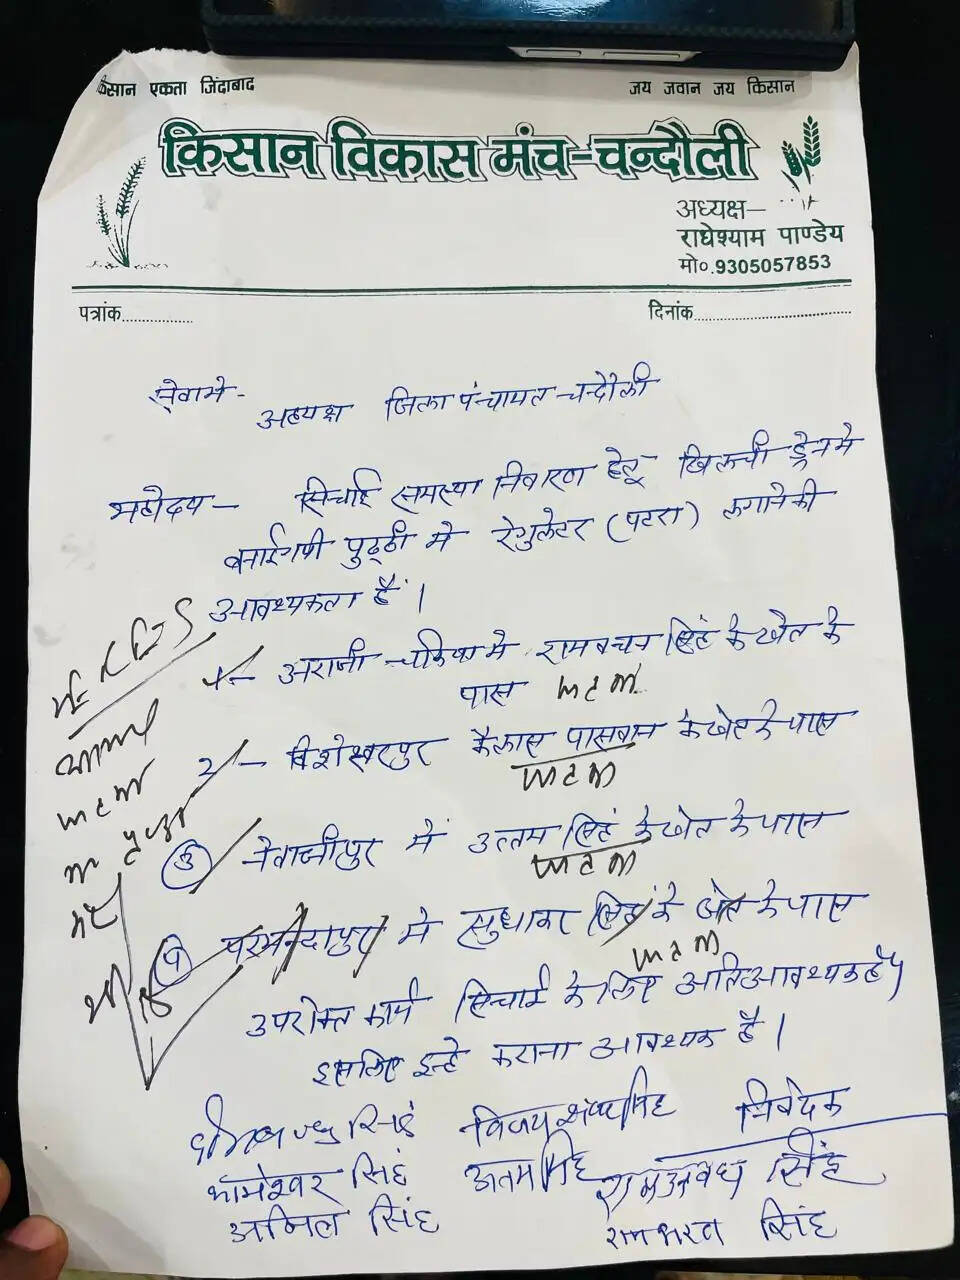 किसान एकता जिंदाबाद
जय जवान जय किसान
किसान विकास मंच-चन्दौली
अध्यक्ष-
राधेश्याम पाण्डेय
मो०.9305057853
पत्रांक..................
दिनांक.......................................
सेवामे-
अध्यक्ष जिला पंचायत चन्दौली
महोदय- सिचाई समस्या निवारण हेतू खिलची ड्रेन मे
बनाईगयी पुठ्ठी मे रेगुलेटर (पटरा) लगाने की
आवश्यकता है।
1- अराजी चकिया मे रामबचन सिंह के खेत के
पास
2- विशेश्वरपुर कैलाश पासवान के खेत के पास
3 नेवाजीपुर में उत्तम सिंह के खेत के पास
4 परमन्दापुर मे सुधाकर सिंह के खेत के पास
उपरोक्त कार्य सिचाई के लिए अतिआवश्यक है
इसलिए इन्हे कराना आवश्यक है।
सिंह निवेदक
कामेश्वर सिंह उत्तम सिंह रामअवध सिंह
अनिल सिंह रामभरत सिंह